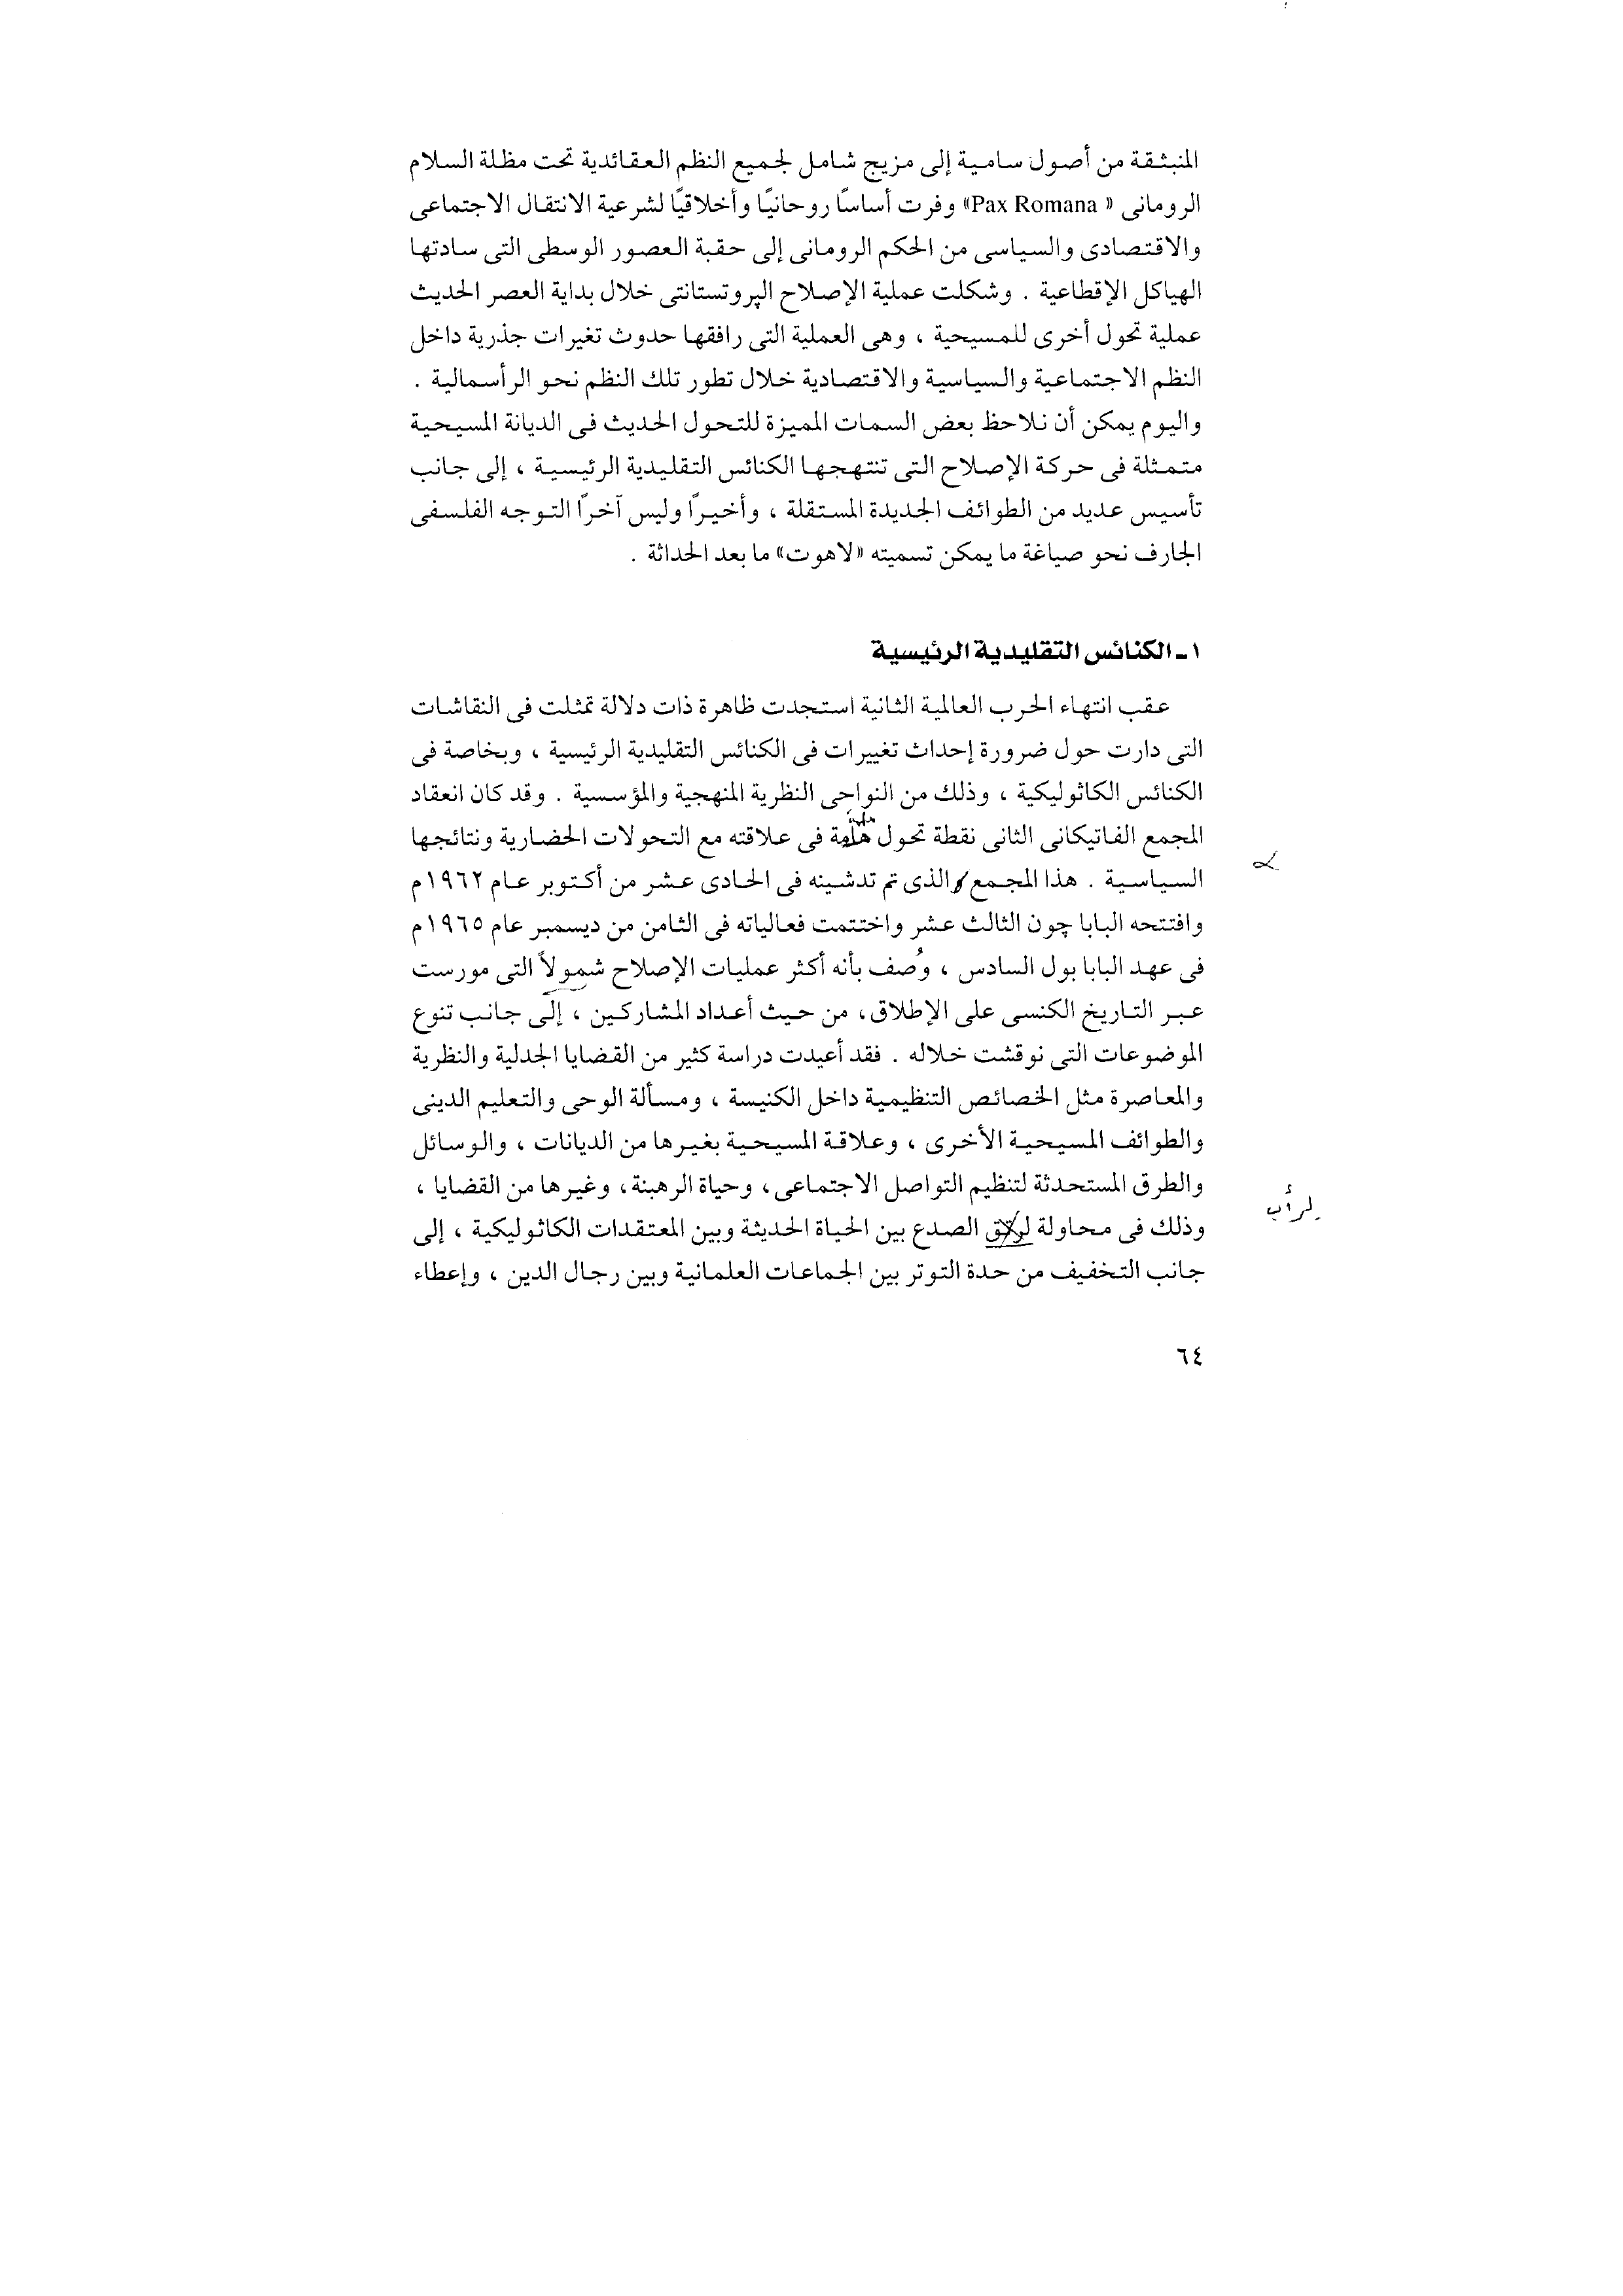 المنبثقة من أصول سامية إلى مزيج شامل لجميع النظم العقائدية تحت مظلة السلام
الرومانى « Pax Romana» وفرت أساسًا روحانيًا وأخلاقيًا لشرعية الانتقال الاجتماعى
والاقتصادى والسياسى من الحكم الرومانى إلى حقبة العصور الوسطى التى سادتها
الهياكل الإقطاعية . وشكلت عملية الإصلاح الپروتستانتى خلال بداية العصر الحديث
عملية تحول أخرى للمسيحية ، وهى العملية التى رافقها حدوث تغيرات جذرية داخل
النظم الاجتماعية والسياسية والاقتصادية خلال تطور تلك النظم نحو الرأسمالية .
واليوم يمكن أن نلاحظ بعض السمات المميزة للتحول الحديث فى الديانة المسيحية
متمثلة فى حركة الإصلاح التى تنتهجها الكنائس التقليدية الرئيسية ، إلى جانب
تأسيس عديد من الطوائف الجديدة المستقلة ، وأخيرًا وليس آخرًا التوجه الفلسفى
الجارف نحو صياغة ما يمكن تسميته «لاهوت» ما بعد الحداثة .
١ - الكنائس التقليدية الرئيسية
عقب انتهاء الحرب العالمية الثانية استجدت ظاهرة ذات دلالة تمثلت فى النقاشات
التى دارت حول ضرورة إحداث تغييرات فى الكنائس التقليدية الرئيسية ، وبخاصة فى
الكنائس الكاثوليكية ، وذلك من النواحى النظرية المنهجية والمؤسسية . وقد كان انعقاد
المجمع الفاتيكانى الثانى نقطة تحول هامة فى علاقته مع التحولات الحضارية ونتائجها
السياسية . هذا المجمع والذى تم تدشينه فى الحادى عشر من أكتوبر عام ١٩٦٢م
وافتتحه البابا چون الثالث عشر واختتمت فعالياته فى الثامن من ديسمبر عام ١٩٦٥م
فى عهد البابا بول السادس ، وُصف بأنه أكثر عمليات الإصلاح شمولاً التى مورست
عبر التاريخ الكنسى على الإطلاق، من حيث أعداد المشاركين ، إلى جانب تنوع
الموضوعات التى نوقشت خلاله . فقد أعيدت دراسة كثير من القضايا الجدلية والنظرية
والمعاصرة مثل الخصائص التنظيمية داخل الكنيسة ، ومسألة الوحى والتعليم الدينى
والطوائف المسيحية الأخرى ، وعلاقة المسيحية بغيرها من الديانات ، والوسائل
والطرق المستحدثة لتنظيم التواصل الاجتماعى، وحياة الرهبنة، وغيرها من القضايا ،
لرأب
وذلك فى محاولة لرتق الصدع بين الحياة الحديثة وبين المعتقدات الكاثوليكية ، إلى
جانب التخفيف من حدة التوتر بين الجماعات العلمانية وبين رجال الدين ، وإعطاء
٦٤